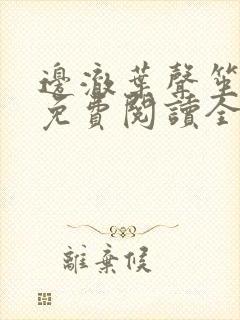 邊澈葉聲笙
免費閱讀全
離棄候